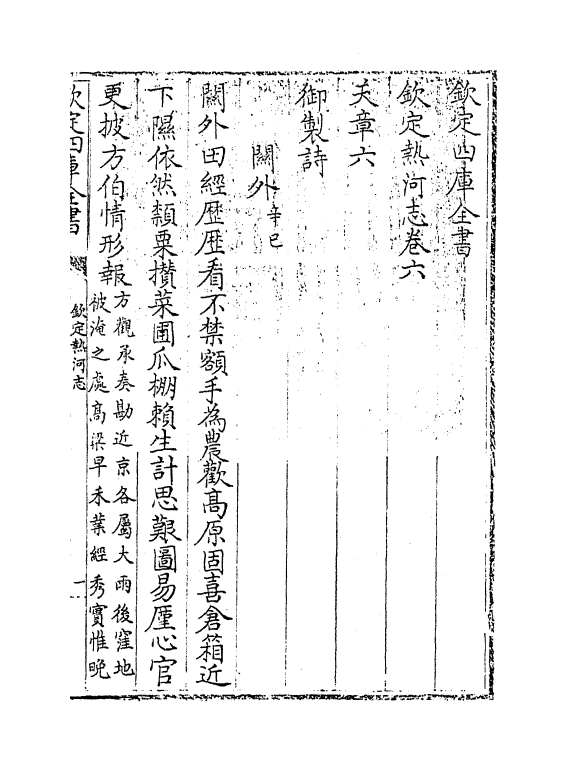 欽定四庫全書
欽定熱河志卷六
天章六
御製詩
關外辛巳
關外田經歴歴看不禁額手為農歡髙原固喜倉箱近
下隰依然顆粟攢菜圃瓜棚賴生計思艱圖易厪心官
更披方伯情形報方觀承奏勘近京各屬大雨後窪地
被淹之處髙粱早禾業經秀實惟晚
欽定四庫全書
欽定熱河志
一